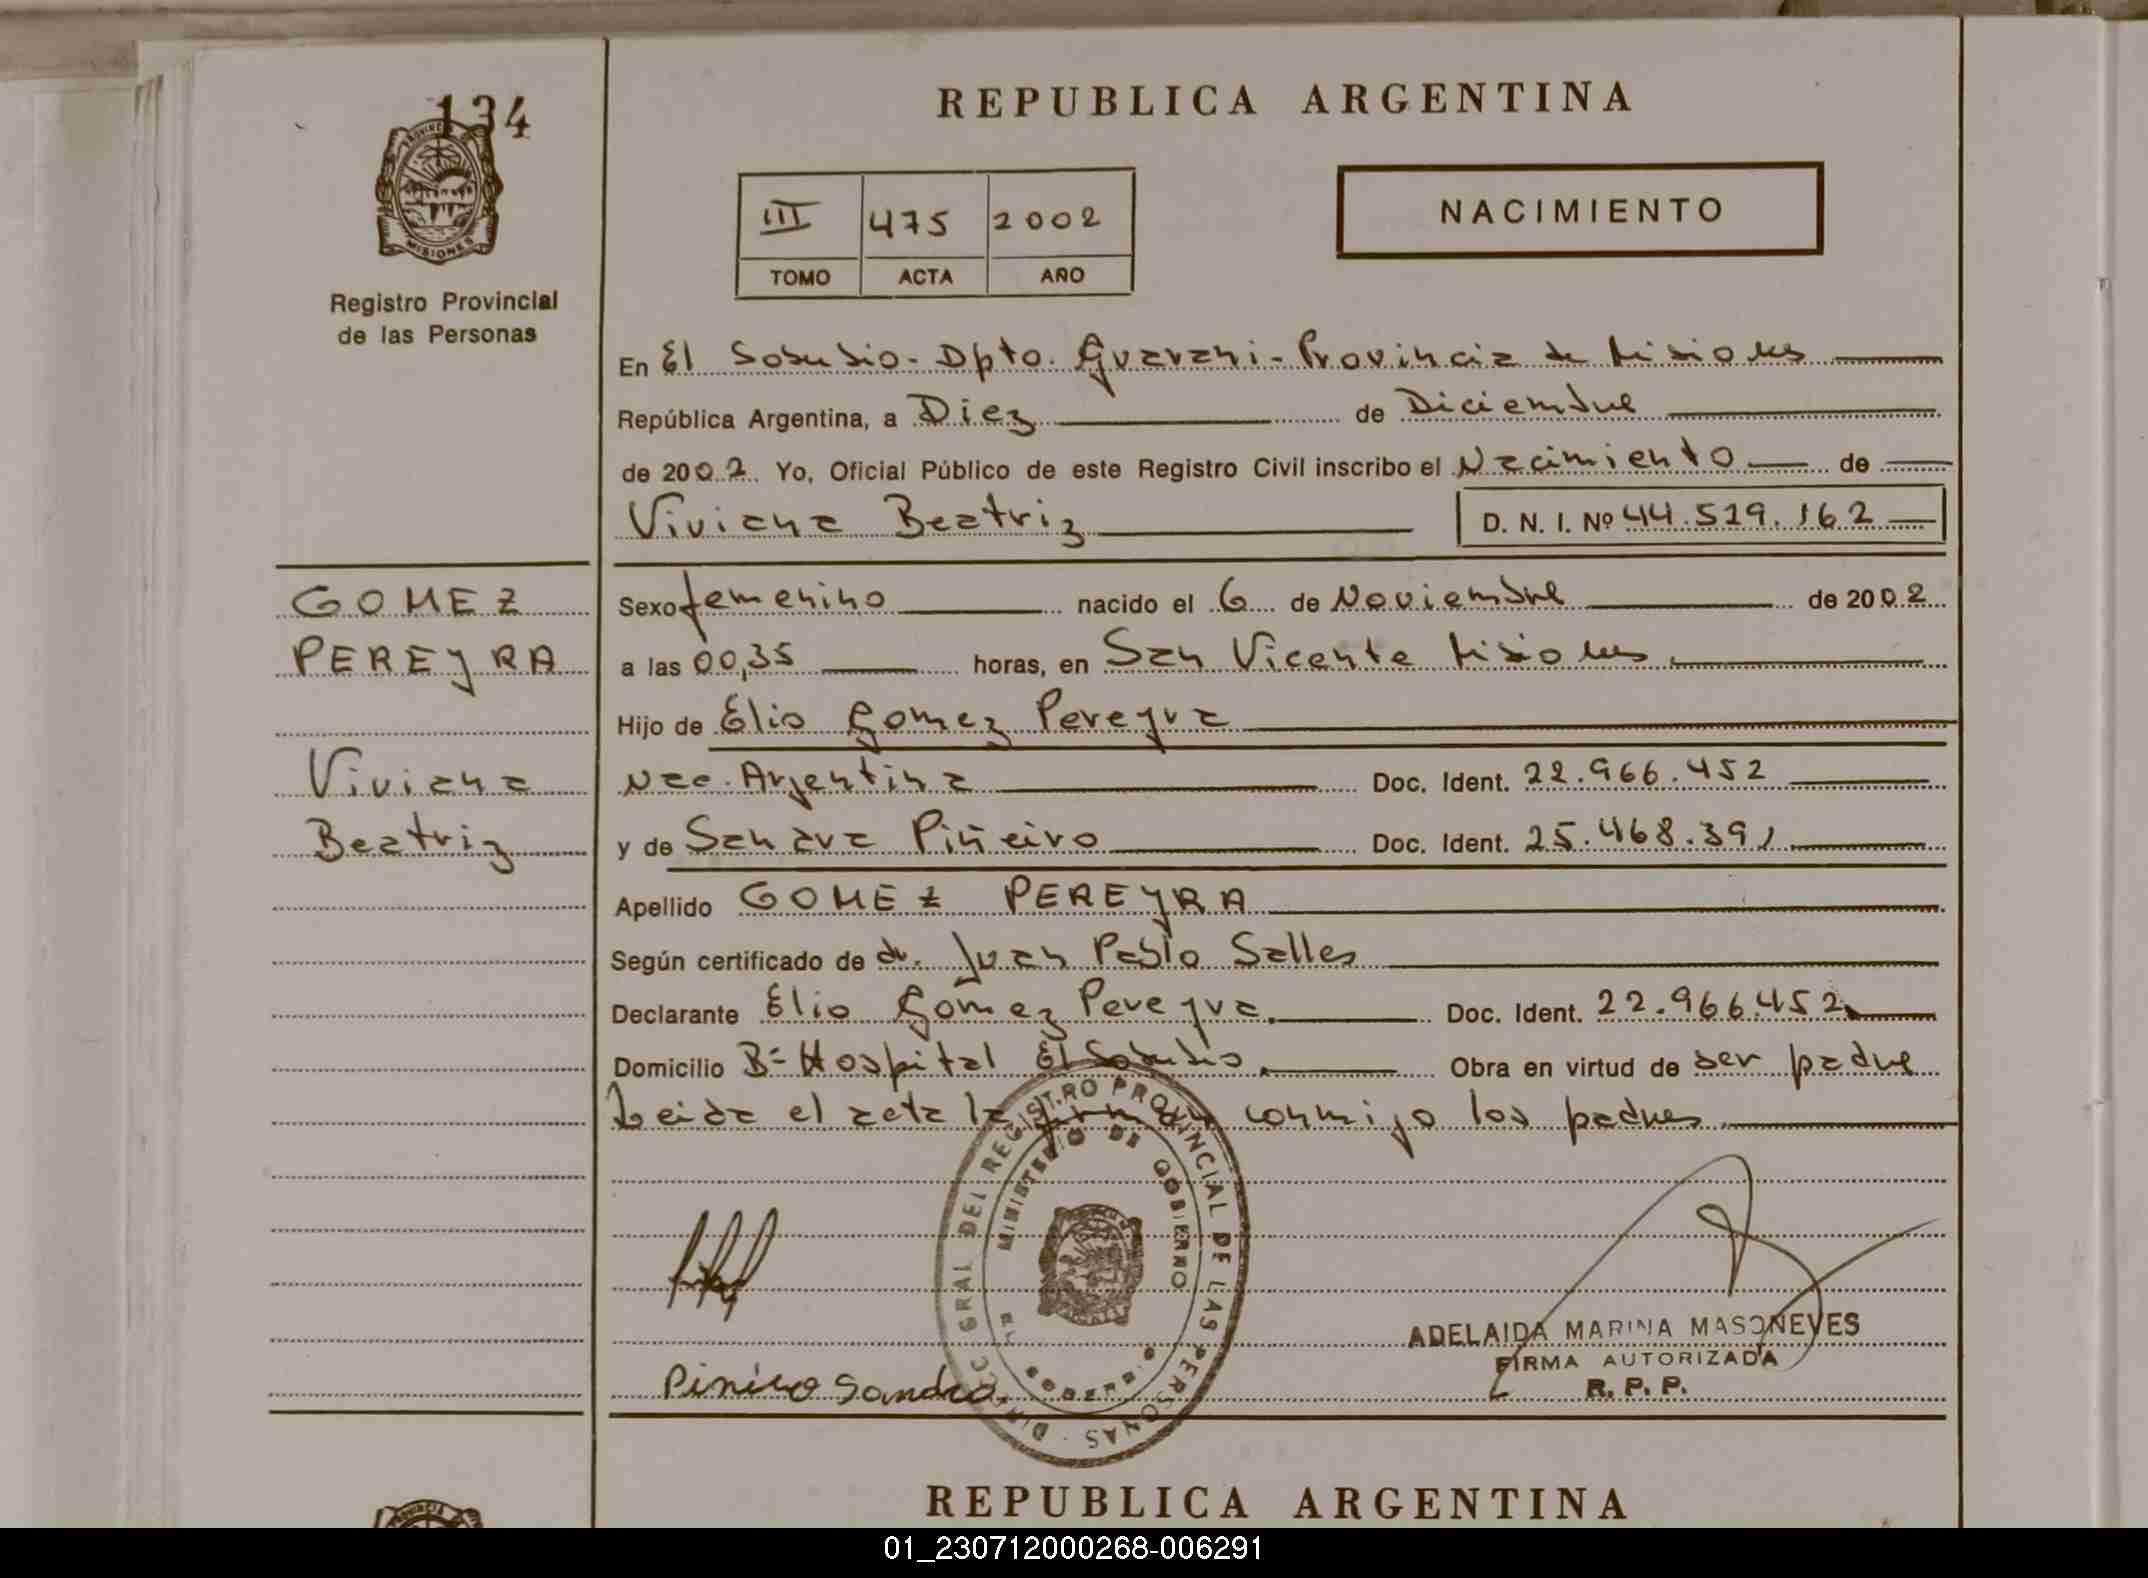 134
PROVINCIA DE MISIONES
Registro Provincial
de las Personas
REPUBLICA ARGENTINA
NACIMIENTO
III 475 2002
TOMO ACTA AÑO
En El Soberbio - Dpto. Guarani - Provincia de Misiones
República Argentina, a Diez de Diciembre
de 2002. Yo, Oficial Público de este Registro Civil inscribo el Nacimiento de
Viviana Beatriz D. N. I. Nº 44.529.162
GOMEZ
PEREYRA
Viviana
Beatriz
Sexo femenino nacido el 6 de Noviembre de 2002
a las 00,35 horas, en San Vicente Misiones
Hijo de Elio Gomez Pereyra
Nac. Argentina Doc. Ident. 22.966.452
y de Sandra Piñeiro Doc. Ident. 25.468.391
Apellido GOMEZ PEREYRA
Según certificado de dr. Juan Pablo Salles
Declarante Elio Gomez Pereyra. Doc. Ident. 22.966.452
Domicilio Bº Hospital El Soberbio. Obra en virtud de ser padre
Leida el acta la firman conmigo los padres.
DIREC. GRAL DEL REGISTRO PROVINCIAL DE LAS PERSONAS
MINISTERIO DE GOBIERNO
ADELAIDA MARINA MASONEVES
FIRMA AUTORIZADA
R. P. P.
Piniero Sandra
REPUBLICA ARGENTINA
01_230712000268-006291